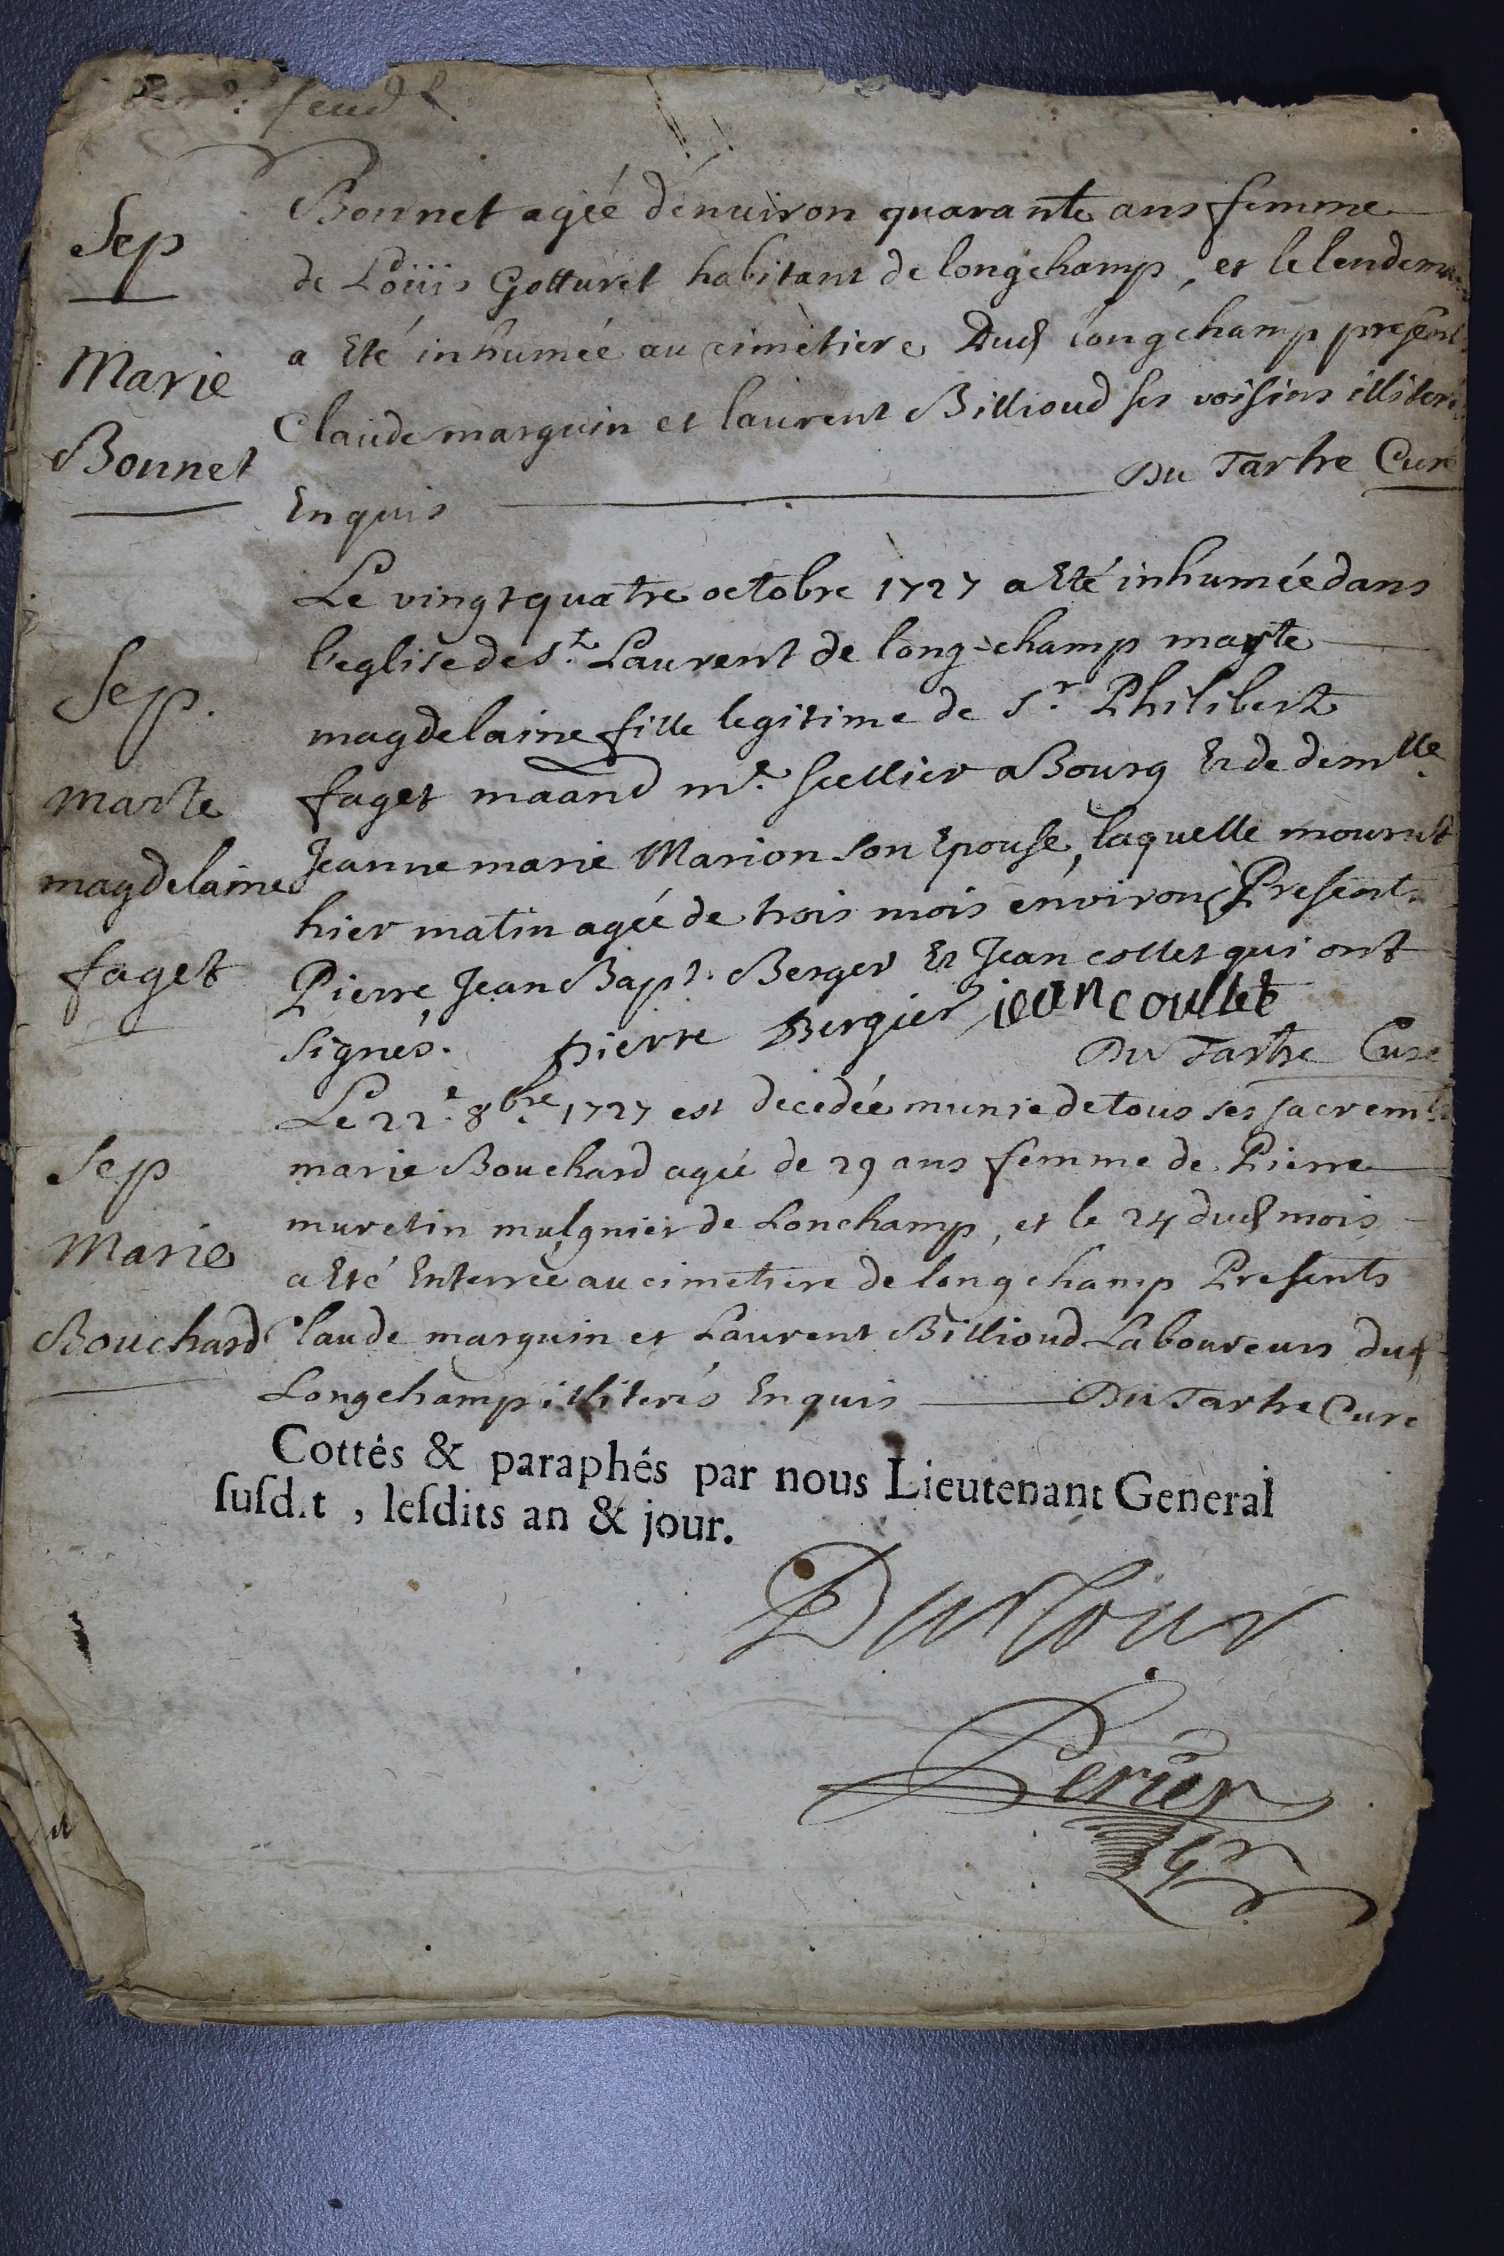 Bonnet agéé dénuiron quarante ans femme
Sep
de Loüis Gotturet habitant de longchamp, et lelendema
a Eté inhuméé au cimetiere Dud longchamp present
Marie
Claude marguin et laurent Billioud ses voisins illiteré
Bonnet
Enquis Du Tartre Curé
Le vingt quatre octobre 1727 a Eté inhuméedans
l'eglisedeSt. Laurent de long-champ marte
Sep.
magdelaine fille legitime de Sr. Philibert
faget maand me. sellier a Bourg Et de demlle
Marte
Jeanne marie Marion son Epouse, laquelle mourut
magdelaine
hier matin agéé de trois mois environ, Present
faget
Pierre, Jean Bapt. Berger Et Jean collet qui ont
signés. pierre Bergier jean coullet
Du Tartre Curé
Le 22e. 8bre. 1727 est decedéé munie de tous ses sacremts
Sep
marie Bouchard agéé de 29 ans femme de Pierre
muretin mulgnier de Lonchamp, et le 24 dud mois
Marie
a Eté Enterréé au cimetiere de longchamp Presents
Bouchard
Claude marguin et Laurent Billioud Laboureurs dud
Longchamp illiterés Enquis Du Tartre Curé
Cottés & paraphés par nous Lieutenant General
susd.t, lesdits an & jour.
Perier